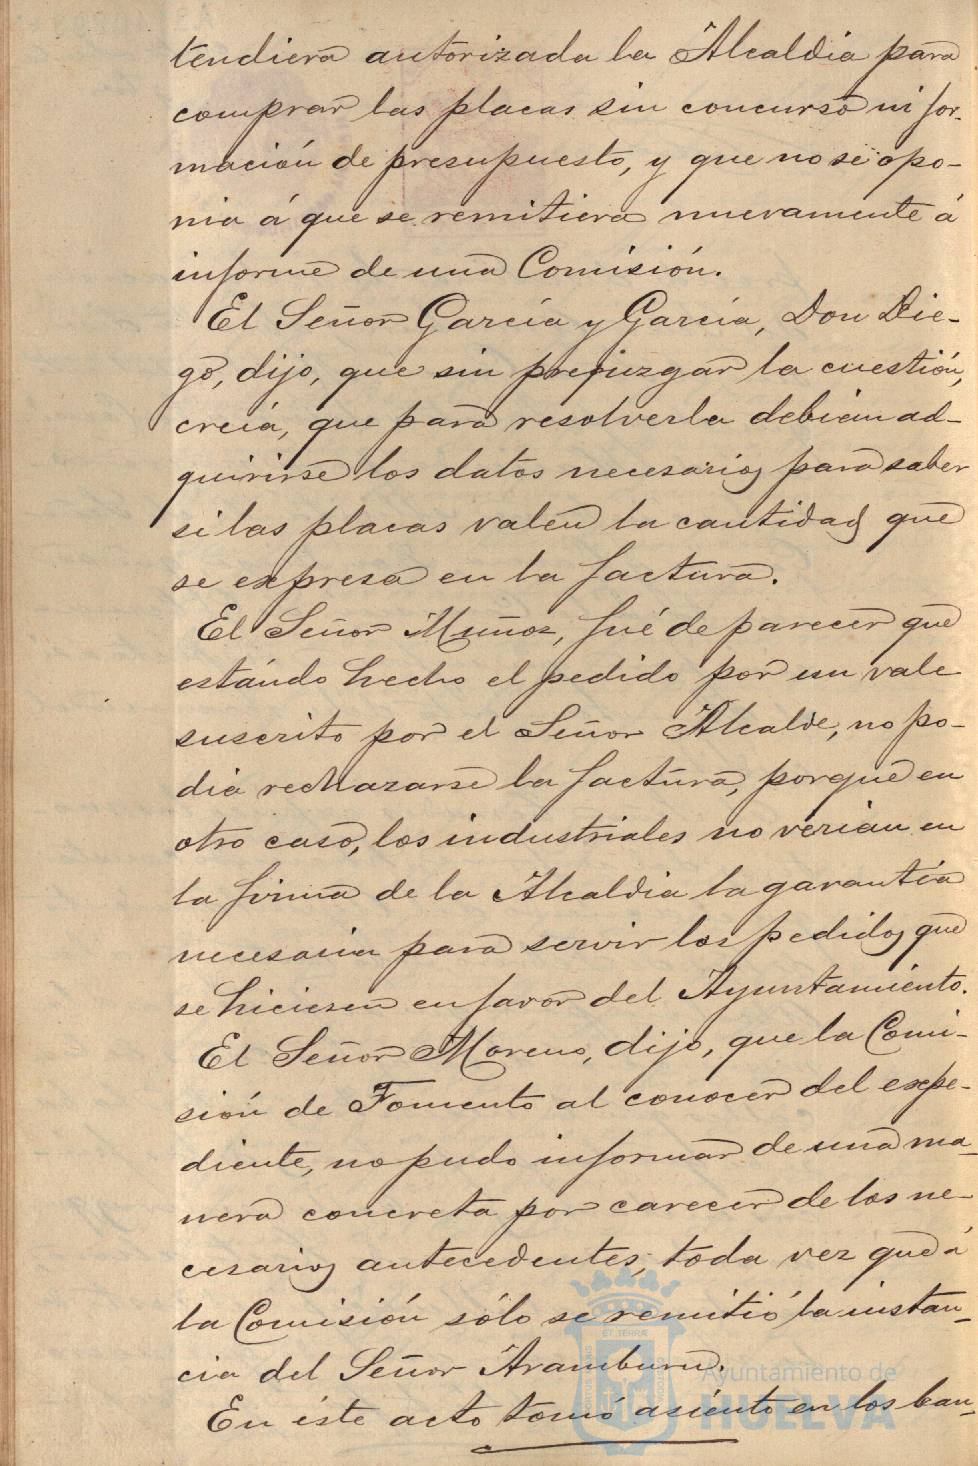 tendiera autorizada la Alcaldia para
comprar las placas sin concurso ni for-
mación de presupuesto, y que no se opo-
nia á que se remitiera nuevamente á
informe de una Comisión.
El Señor García y García, Don Die-
go, dijo, que sin prejuzgar la cuestión,
creía, que para resolverla debian ad-
quirirse los datos necesarios para saber
si las placas valen la cantidad que
se expresa en la factura.
El Señor Muñoz, fué de parecer que
estándo hecho el pedido por un vale
suscrito por el Señor Alcalde, no po-
dia rechazarse la factura, porque en
otro caso, los industriales no verian en
la firma de la Alcaldia la garantía
necesaria para servir los pedidos que
se hiciesen en favor del Ayuntamiento.
El Señor Moreno, dijo, que la Comi-
sión de Fomento al conocer del expe-
diente, no pudo informar de una ma-
nera concreta por carecer de los ne-
cesarios antecedentes, toda vez que á
la Comisión sólo se remitió la instan-
cia del Señor Aramburu.
En éste acto tomó asiento en los ban-
ET TERRÆ
Ayuntamiento de
HUELVA